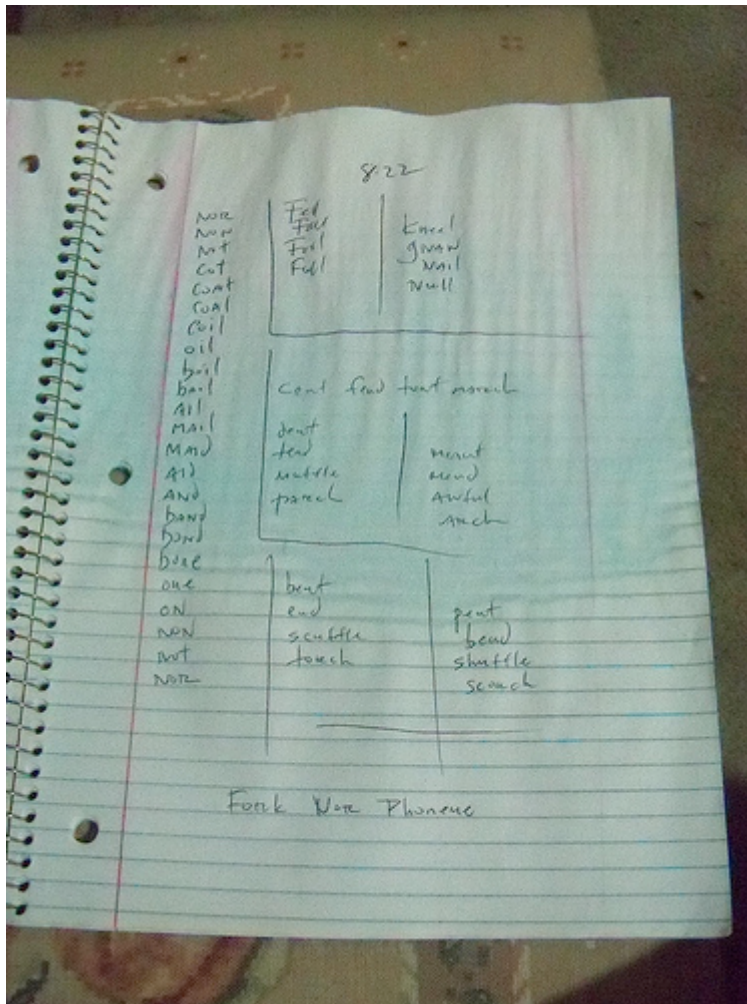 8-22
NOR
NON
NOT
COT
COAT
COAL
COIL
oil
boil
bail
AIL
MAIL
MAID
AID
AND
bAND
bOND
bone
one
ON
NON
NOT
NOR
Foil
Full
kneel
gnaw
NAIL
Null
feud
muffle
parch
mend
AWful
Arch
bent
end
scuffle
touch
pent
bend
shuffle
Fork Nor Phoneme